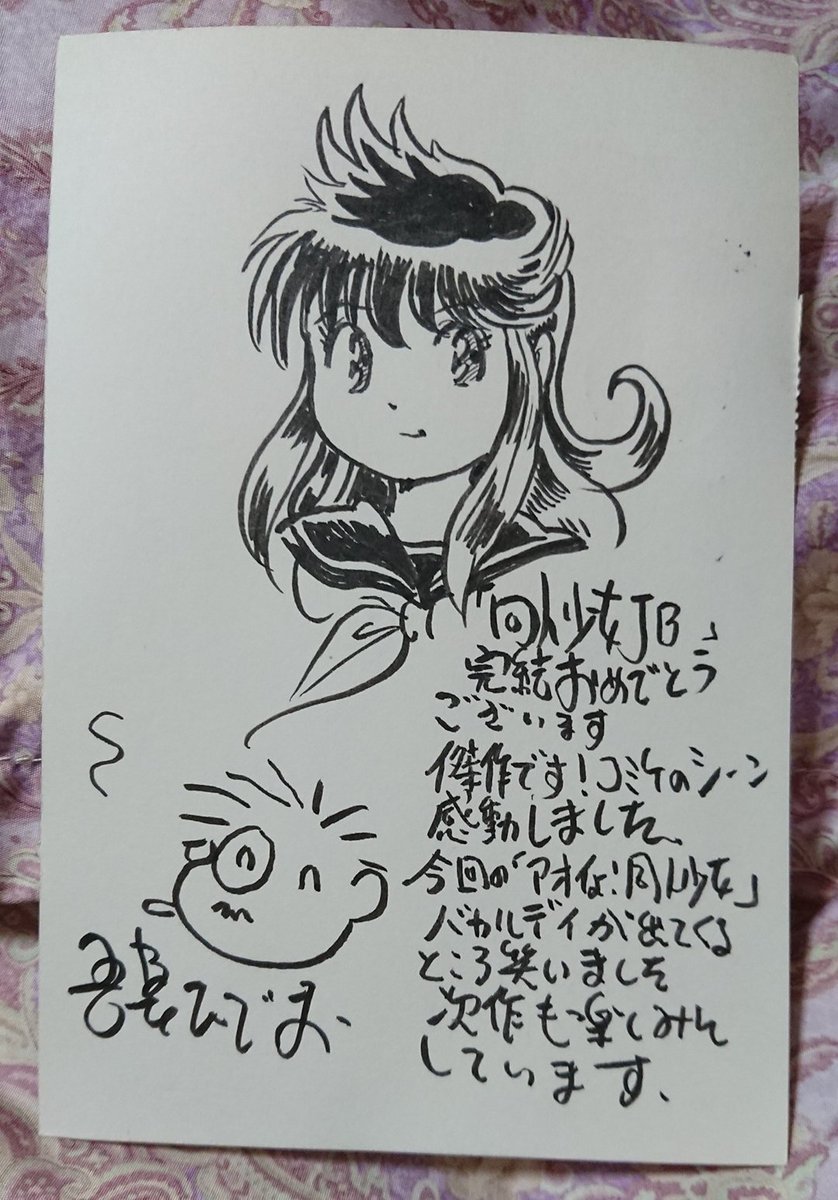 「同人少女JB」
完結おめでとう
ございます
傑作です!コミケのシーン
感動しました、
今回の「アオイな同人少女」
バカルディが出てくる
ところ笑いました
次作も楽しみに
しています、
吾妻ひでお